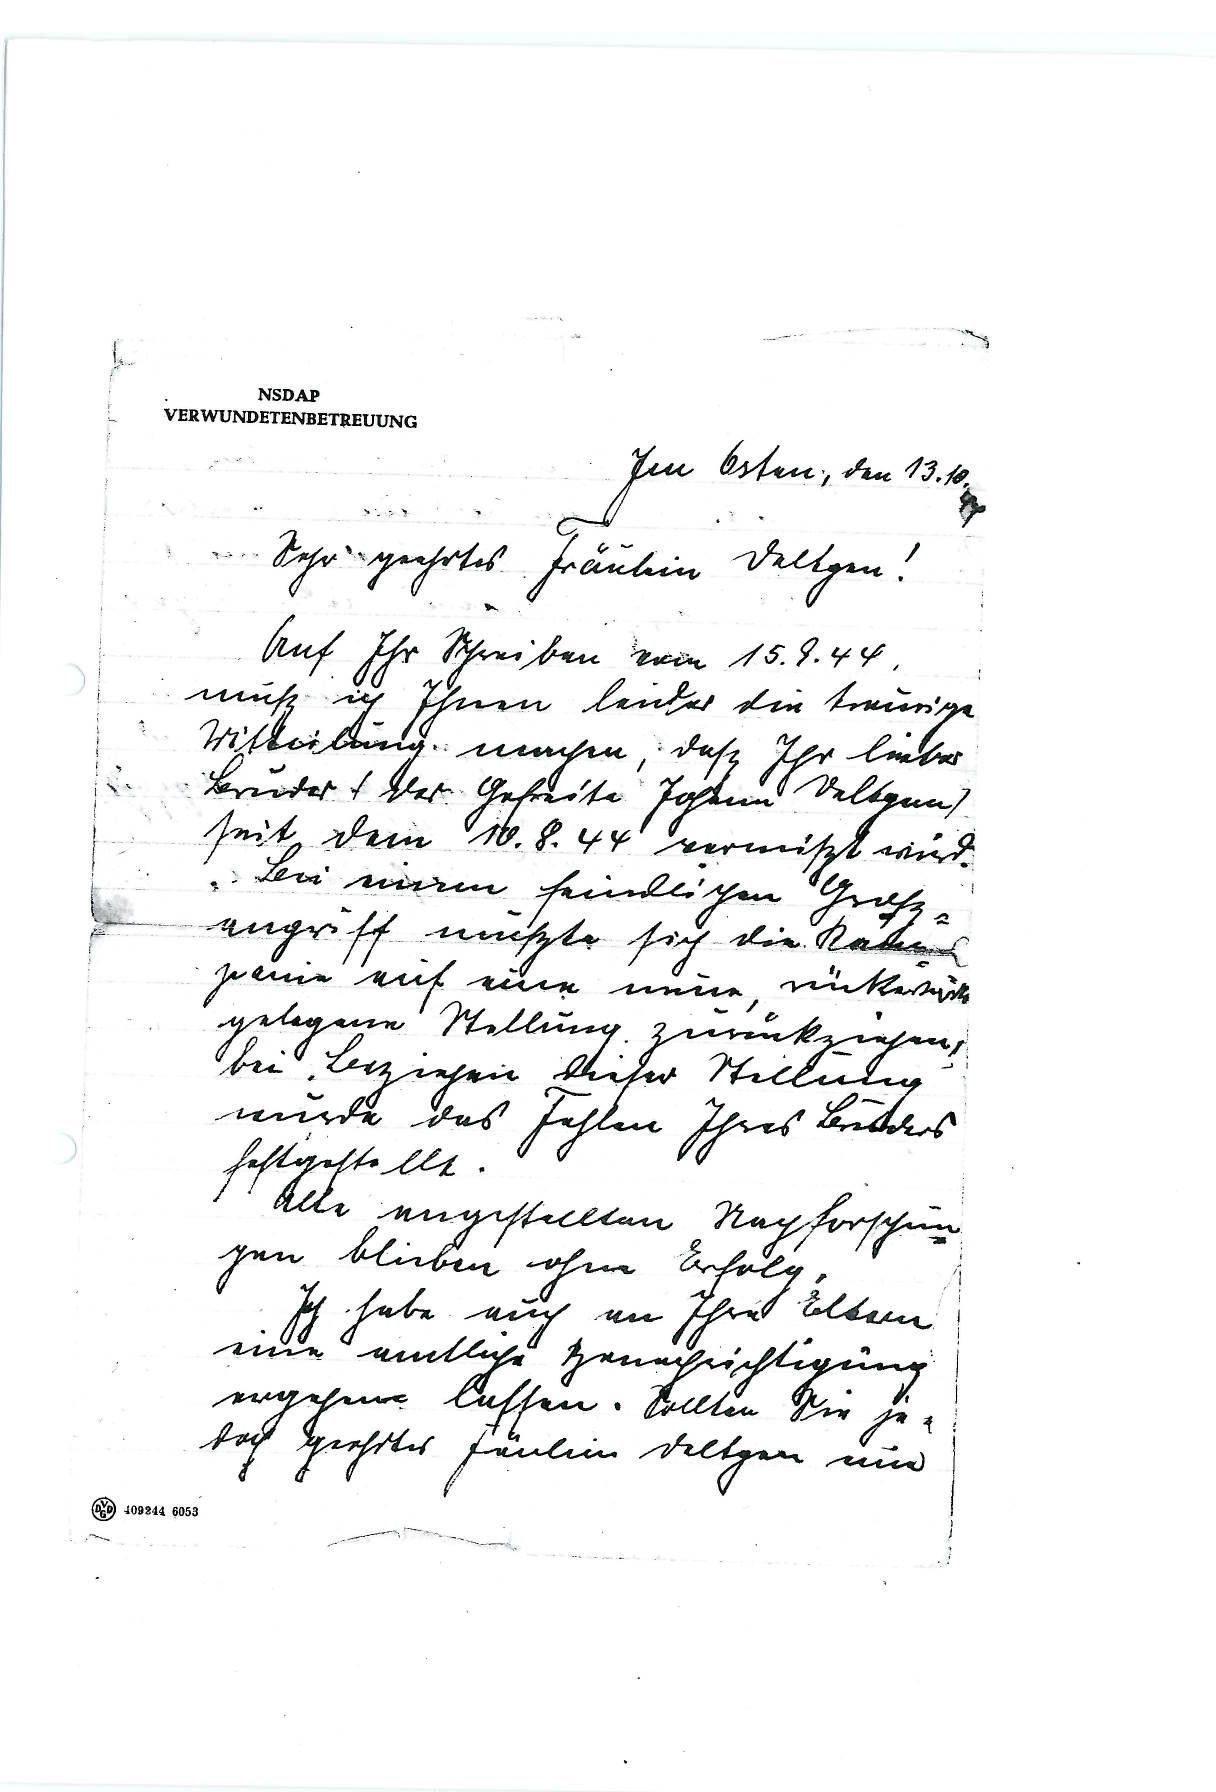 NSDAP
VERWUNDETENBETREUUNG
Im Osten, den 13.10.
Sehr geehrtes Fräulein Deltgen!
Auf Ihr Schreiben vom 15.9.44,
muß ich Ihnen leider die traurige
Mitteilung machen, daß Ihr lieber
Bruder (der Gefreite Johann Deltgen)
seit dem 10.8.44 vermißt wird.
Bei einem feindlichen Groß=
angriff mußte sich die Kom=
panie auf eine neue, rückwärts
gelegene Stellung zurückziehen,
bei Beziehen dieser Stellung
wurde das Fehlen Ihres Bruders
festgestellt.
Alle angestellten Nachforschun=
gen blieben ohne Erfolg.
Ich habe auch an Ihre Eltern
eine amtliche Benachrichtigung
ergehen lassen. Sollten Sie je=
doch geehrtes Fräulein Deltgen nun
DVGD 409244 6053